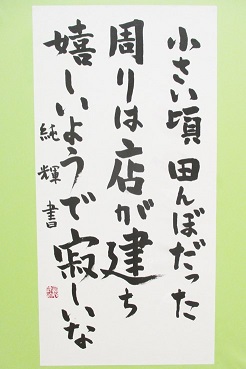 小さい頃田んぼだった
周りは店が建ち
嬉しいようで寂しいな
純輝書